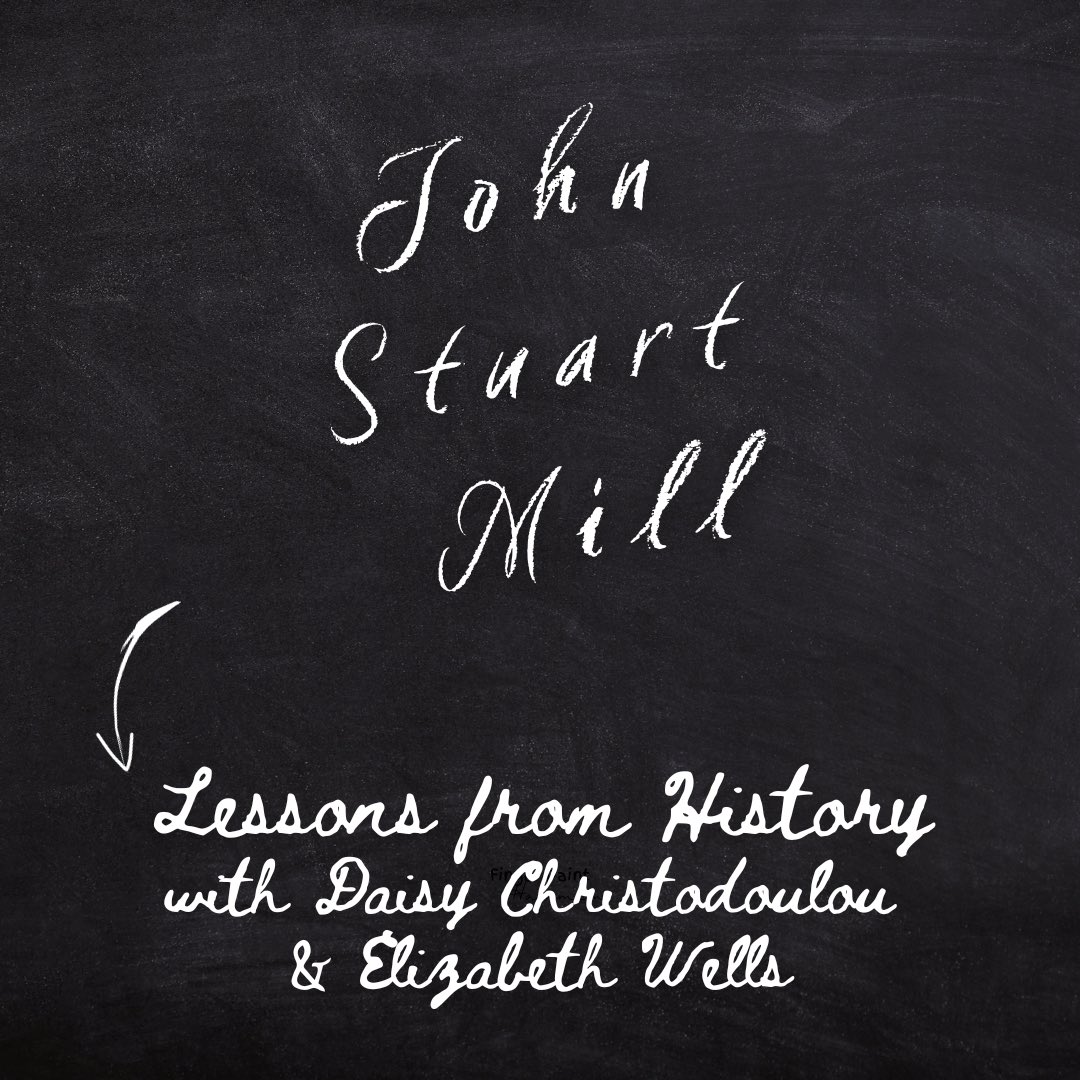 John
Stuart
Mill
Lessons from History
with Daisy Christodoulou
& Elizabeth Wells